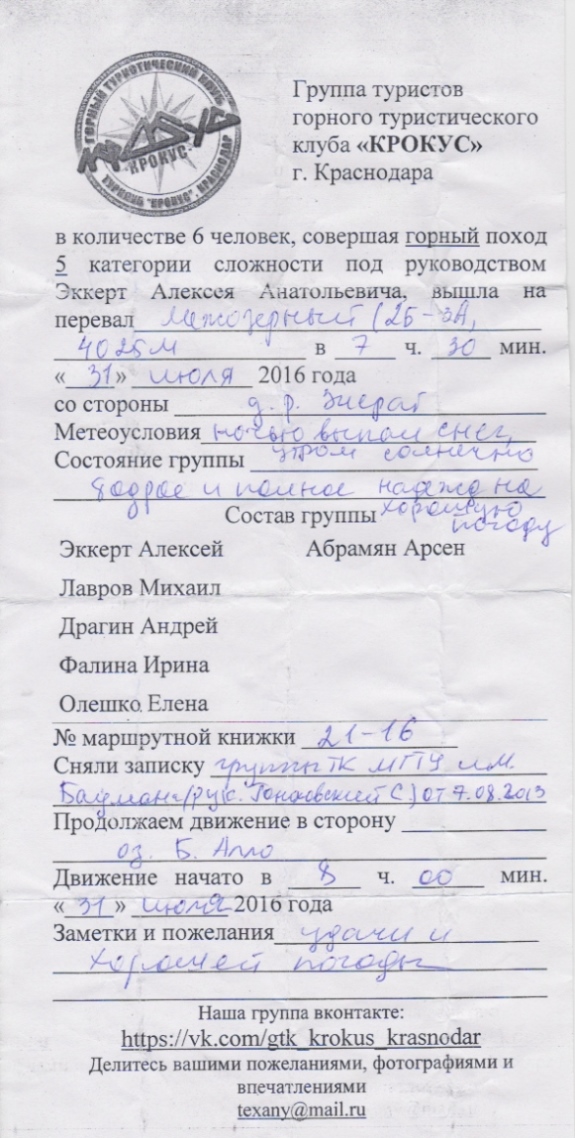 ГОРНЫЙ ТУРИСТИЧЕСКИЙ КЛУБ
"КРОКУС"
ТУРКЛУБ "КРОКУС", КРАСНОДАР
Группа туристов
горного туристического
клуба «КРОКУС»
г. Краснодара
в количестве 6 человек, совершая горный поход
5 категории сложности под руководством
Эккерт Алексея Анатольевича, вышла на
перевал Межозерный (2Б-3А,
4025м в 7 ч. 30 мин.
«31» июля 2016 года
со стороны д. р.
Метеоусловия ночью выпал снег,
утром солнечно
Состояние группы
бодрое и полное надежд на
хорошую
погоду
Состав группы
Эккерт Алексей Абрамян Арсен
Лавров Михаил
Драгин Андрей
Фалина Ирина
Олешко Елена
№ маршрутной книжки 21-16
Сняли записку группы ТК МГТУ им.
Баумана (рук. С.) от 7.08.2013
Продолжаем движение в сторону
оз. Б. Алло
Движение начато в 8 ч. 00 мин.
«31» июля 2016 года
Заметки и пожелания удачи и
хорошей погоды
Наша группа вконтакте:
https://vk.com/gtk_krokus_krasnodar
Делитесь вашими пожеланиями, фотографиями и
впечатлениями
texany@mail.ru